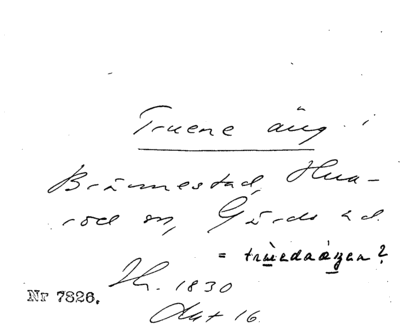 Truene äng i
Brännestad, Hua-
röd sn, Gärds hd.
= truedaängen?
Sk. 1830
Akt 16.
Nr 7326.